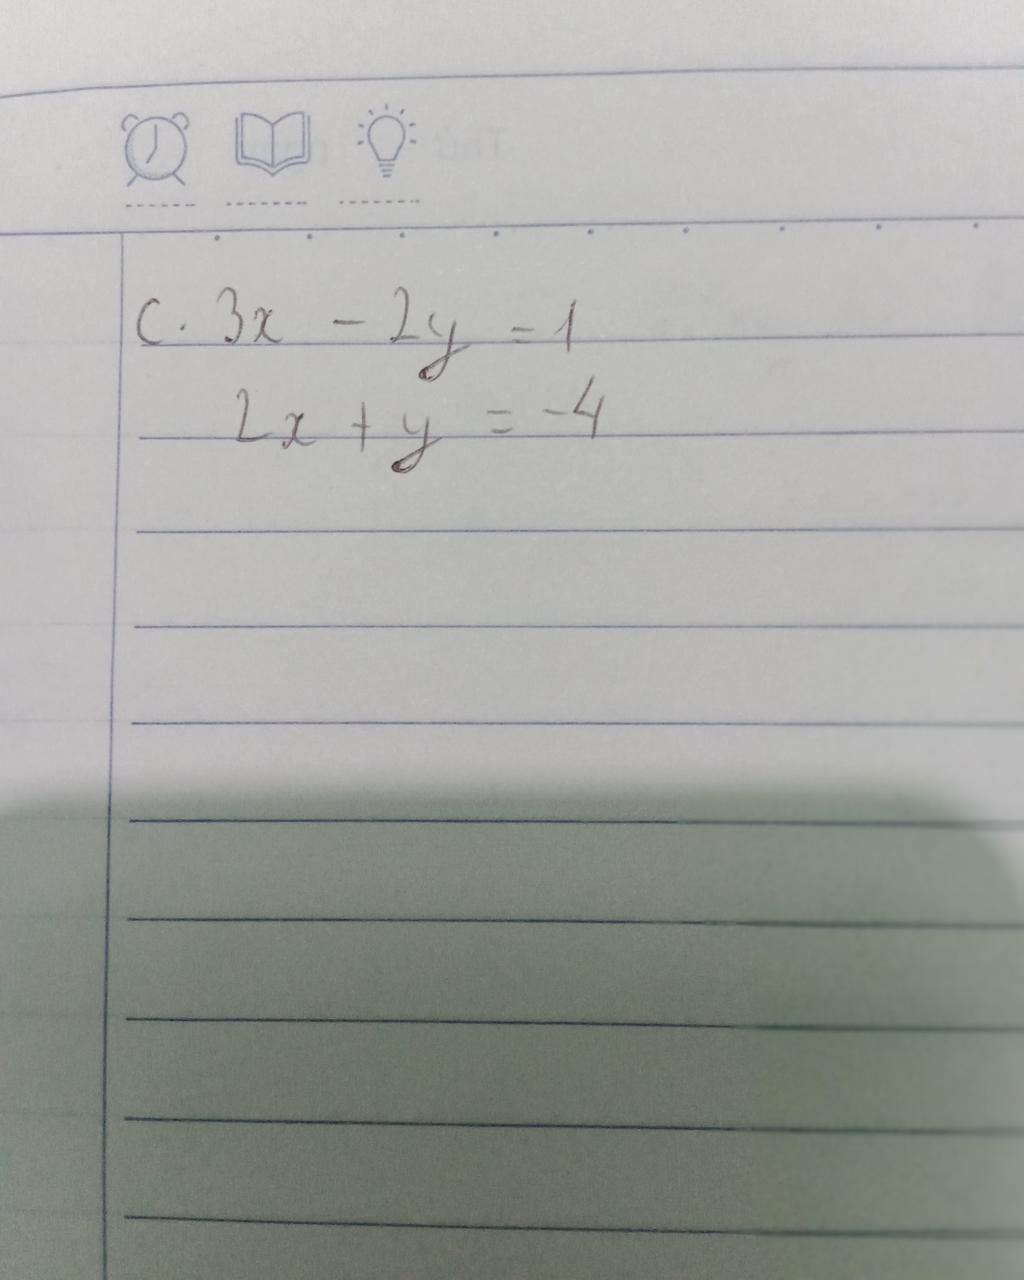 C. 3x - 2y = 1
2x + y = -4